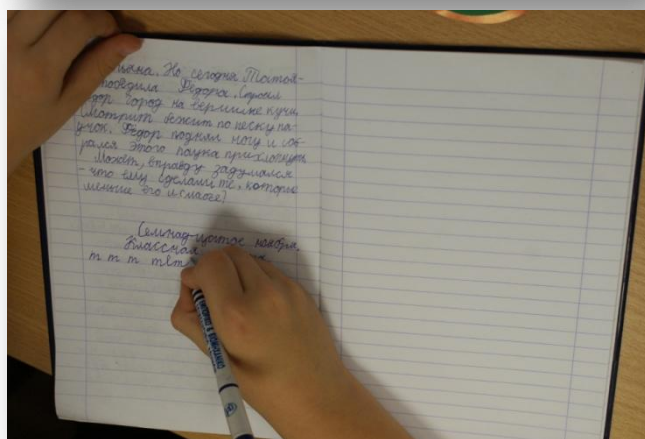 Но сегодня Татья-
победила Фёдора. Строит
Фёдор город на вершине кучи,
смотрит бежит по песку па-
учок. Фёдор поднял ногу и соб-
рался этого паука прихлопнуть
Может, вправду задумался
- что ему сделали те, которые
меньше его и слабее?
Семнадцатое ноября.
Классная
т т т